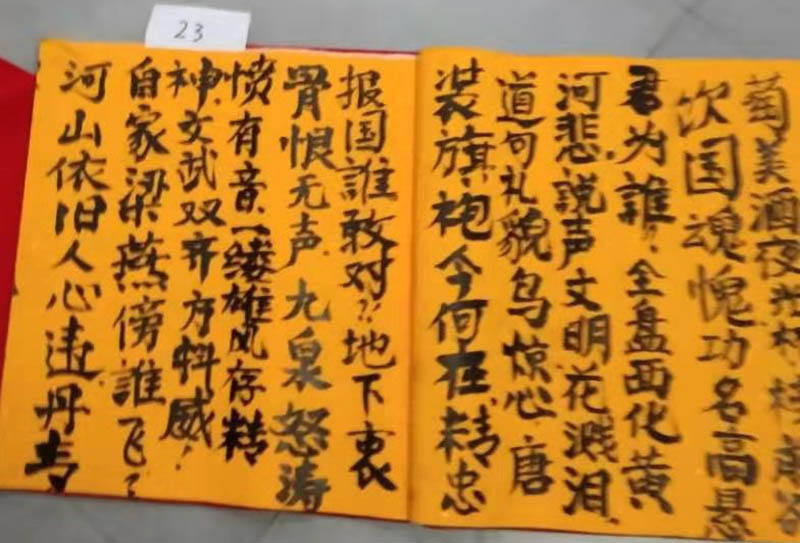 23
萄美酒夜光杯
次国魂愧功名高悬
君为誰？全盘西化黄
河悲.説声文明花溅泪.
道句礼貌鸟惊心.唐
装旗袍今何在.精忠
报国誰敢对??地下衷
骨恨无声.九泉怒涛
愤有音.一缕雄风存精
神.文武双齐方抖威!
自家梁燕傍誰飞?
河山依旧人心违.丹青